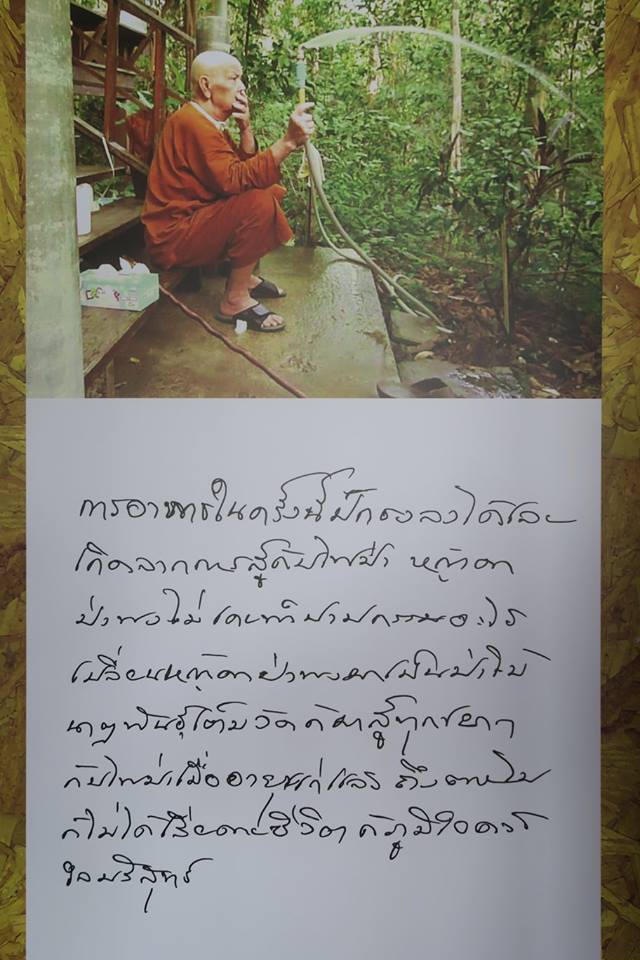 การอาพาธในครั้งนี้
เกิดจากการสู้กับไฟป่า หญ้าคา
ป่าพงไม่เคยทำบาปกรรมอะไร
เปลี่ยนหญ้าคาป่าพงมาเป็นป่าไม้
นาๆพันธุ์เต็มวัด ทุกข์ยาก
กับไฟป่าเมื่ออายุแก่แล้ว ถึงตายไป
ก็ไม่ได้เสียดายชีวิต ก็ภูมิใจ
บริสุทธิ์